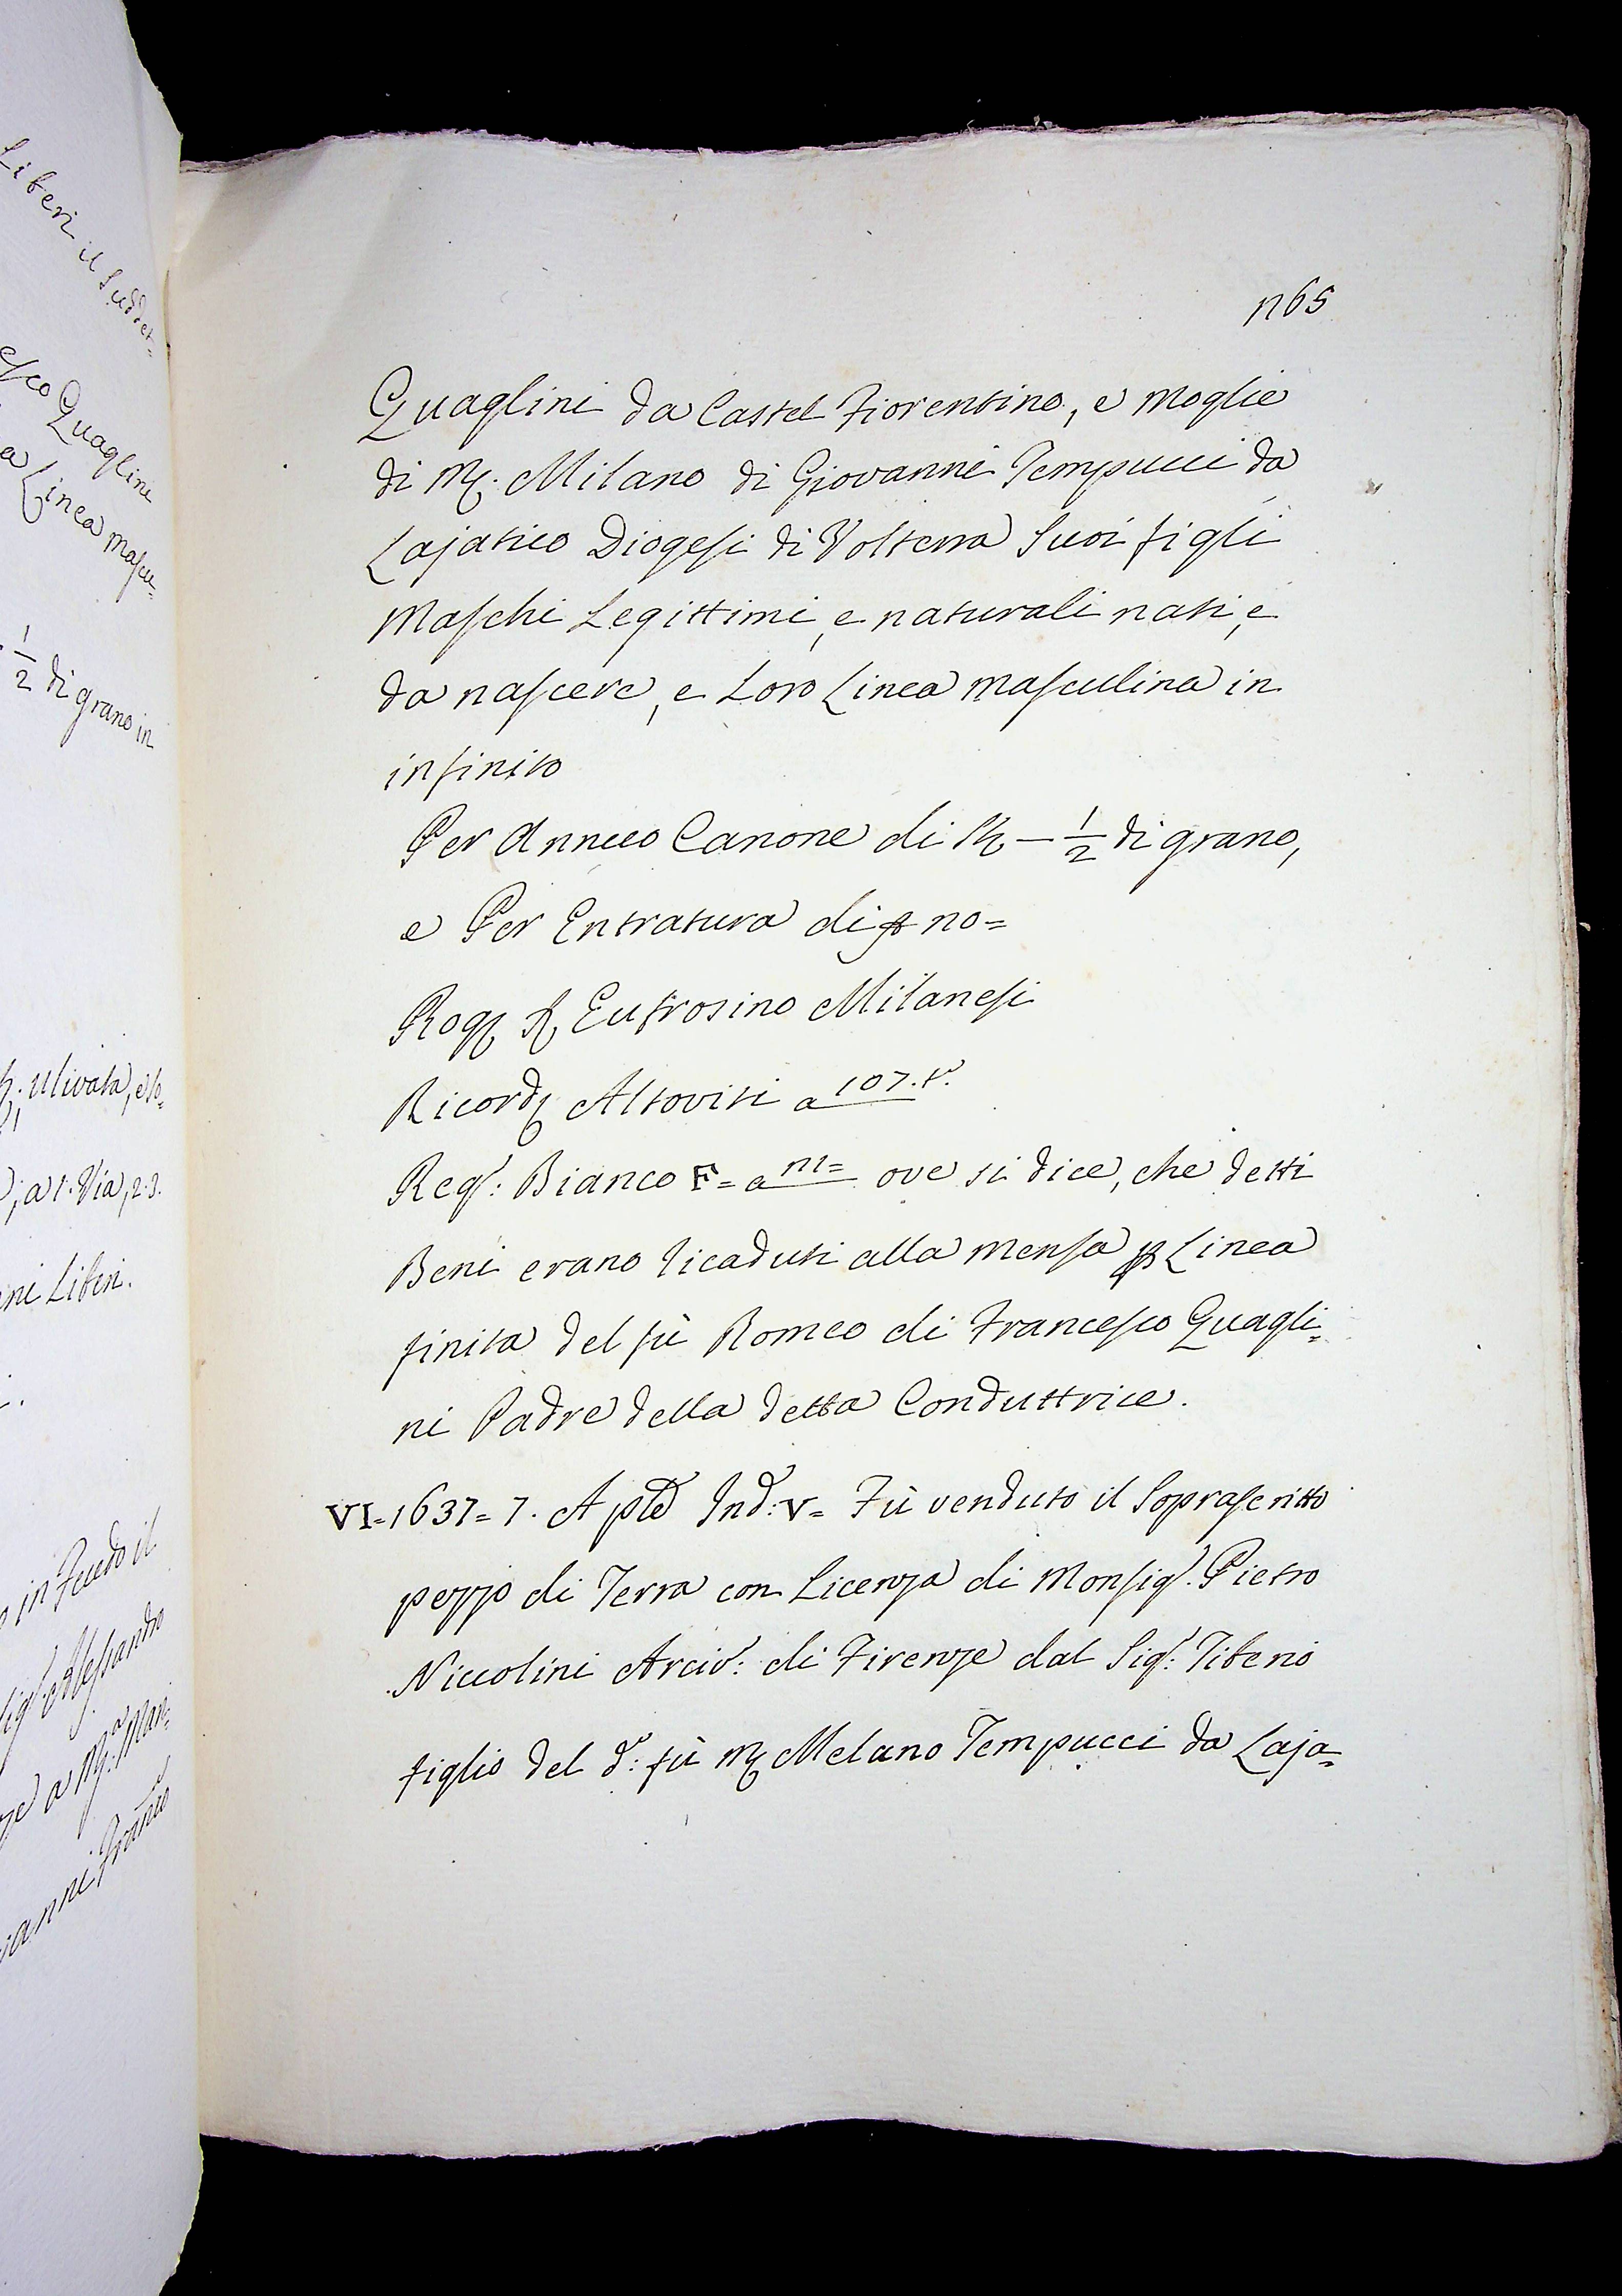 Liberi il Suddet=
esco Quaglini
a Linea Mascu=
1/2 di grano in
Ulivata, e so=
a 1. Via, 2. 3.
ni Liberi.
in Feudo il
Sig.r Alessandro
a M.a Mari=
vanni Franc.o
1165
Quaglini da Castel Fiorentino, e Moglie
di M. Milano di Giovanni Tempucci da
Lajatico Diogesi di Volterra Suoi figli
Maschi Legittimi, e naturali nati, e
da nascere, e Loro Linea Mascculina in
infinito
Per Annuo Canone di St — 1/2 di grano,
e Per Entratura di no=
Rog. S. Eufrosino Milanesi
Ricord. Altoviti a 107. t.
Reg.: Bianco F= a 111= ove si dice, che detti
Beni erano ricaduti alla Mensa p Linea
finita del fù Romeo di Francesco Quagli=
ni Padre della detta Conduttrice.
VI=1637= 7. Aple Ind: V= Fù venduto il Soprascritto
pezzo di Terra con Licenza di Monsig.r Pietro
Niccolini Arciv: di Firenze dal Sig.r Tiberio
figlio del d.o: fù M. Melano Tempucci da Laja=